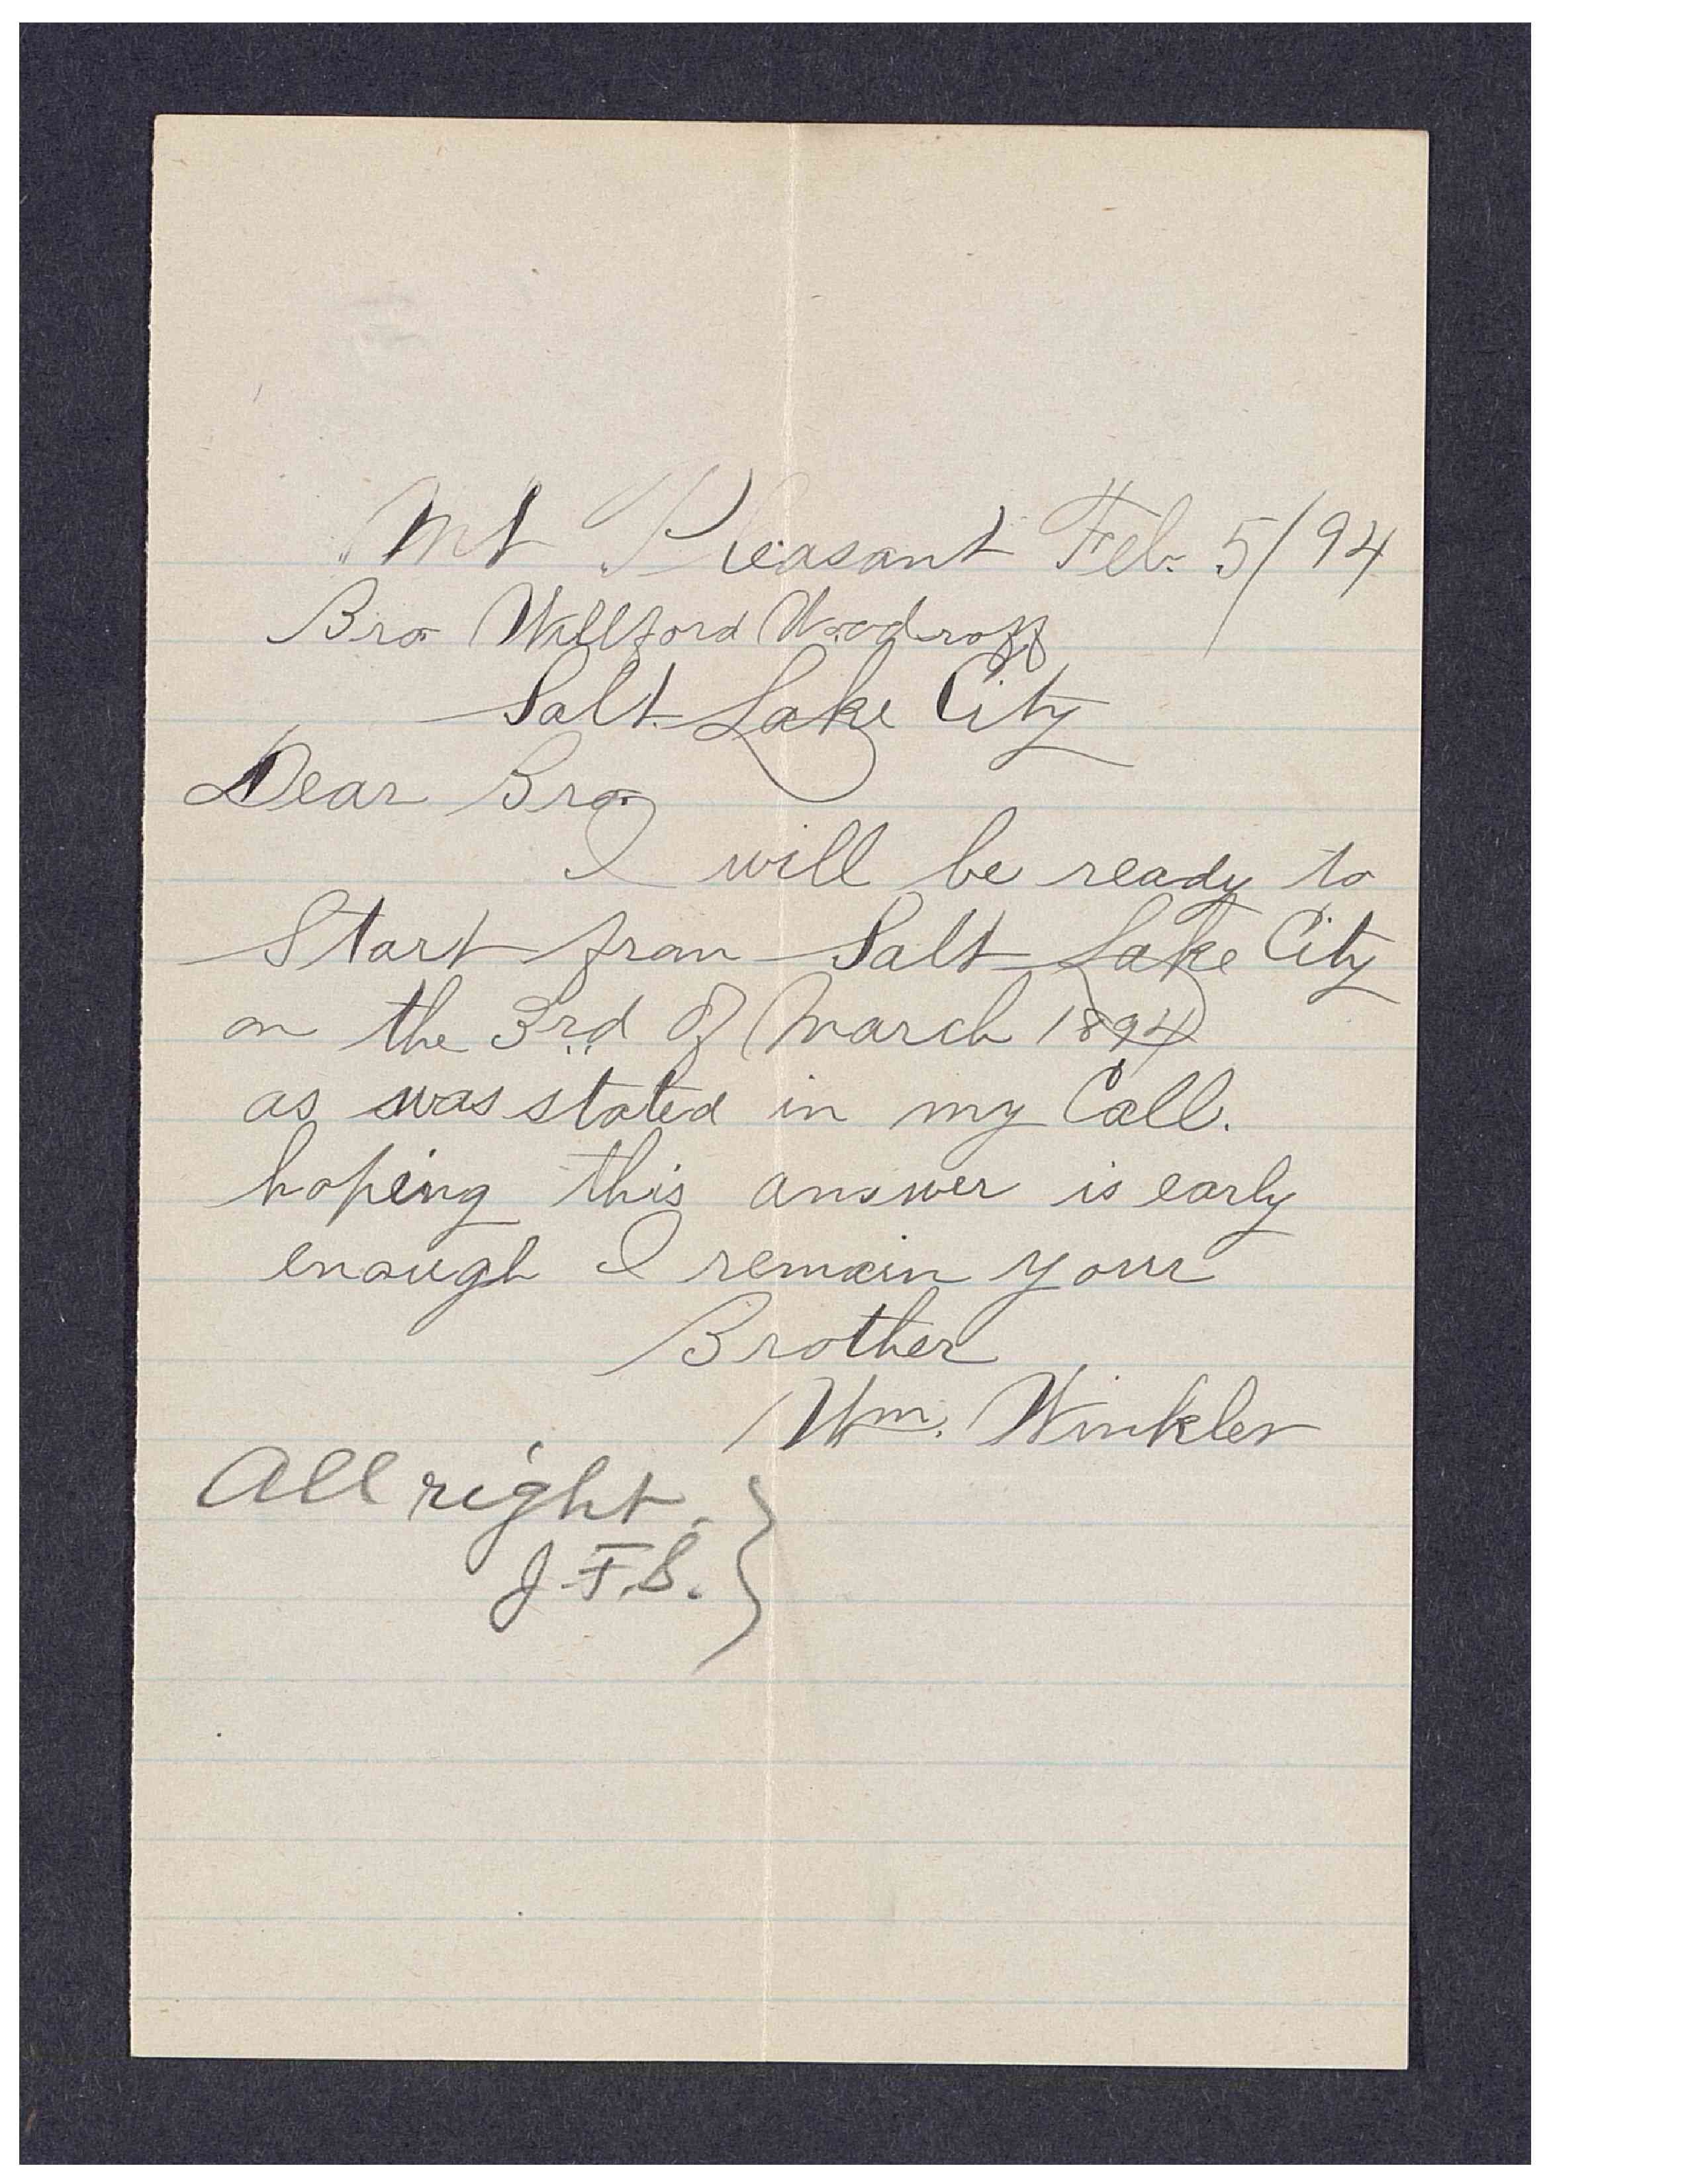 Mt Pleasant Feb. 5/94
Bro Willford Woodroff
Salt Lake City
Dear Bro.
I will be ready to
Start from Salt Lake City
on the 3rd of March 1894
as was stated in my Call.
hoping this answer is early
enough I remain your
Brother
Wm. Winkler
All right.
J.F.S.